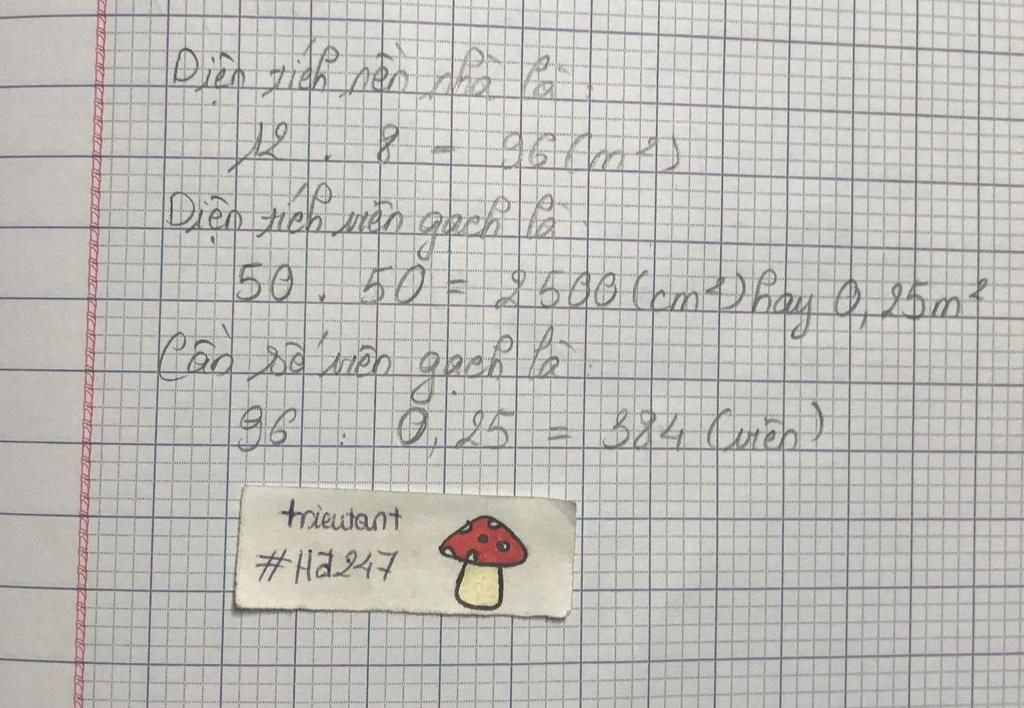 Diện tích nền nhà là:
12 . 8 = 96 (m²)
Diện tích viên gạch là
50 . 50 = 2500 (cm²) hay 0,25m²
Cần số viên gạch là:
96 : 0,25 = 384 (viên)
trieutant
#Hd247